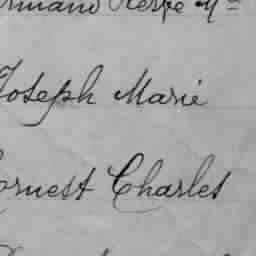 Armand Herve M=
Joseph Marie
Ernest Charles